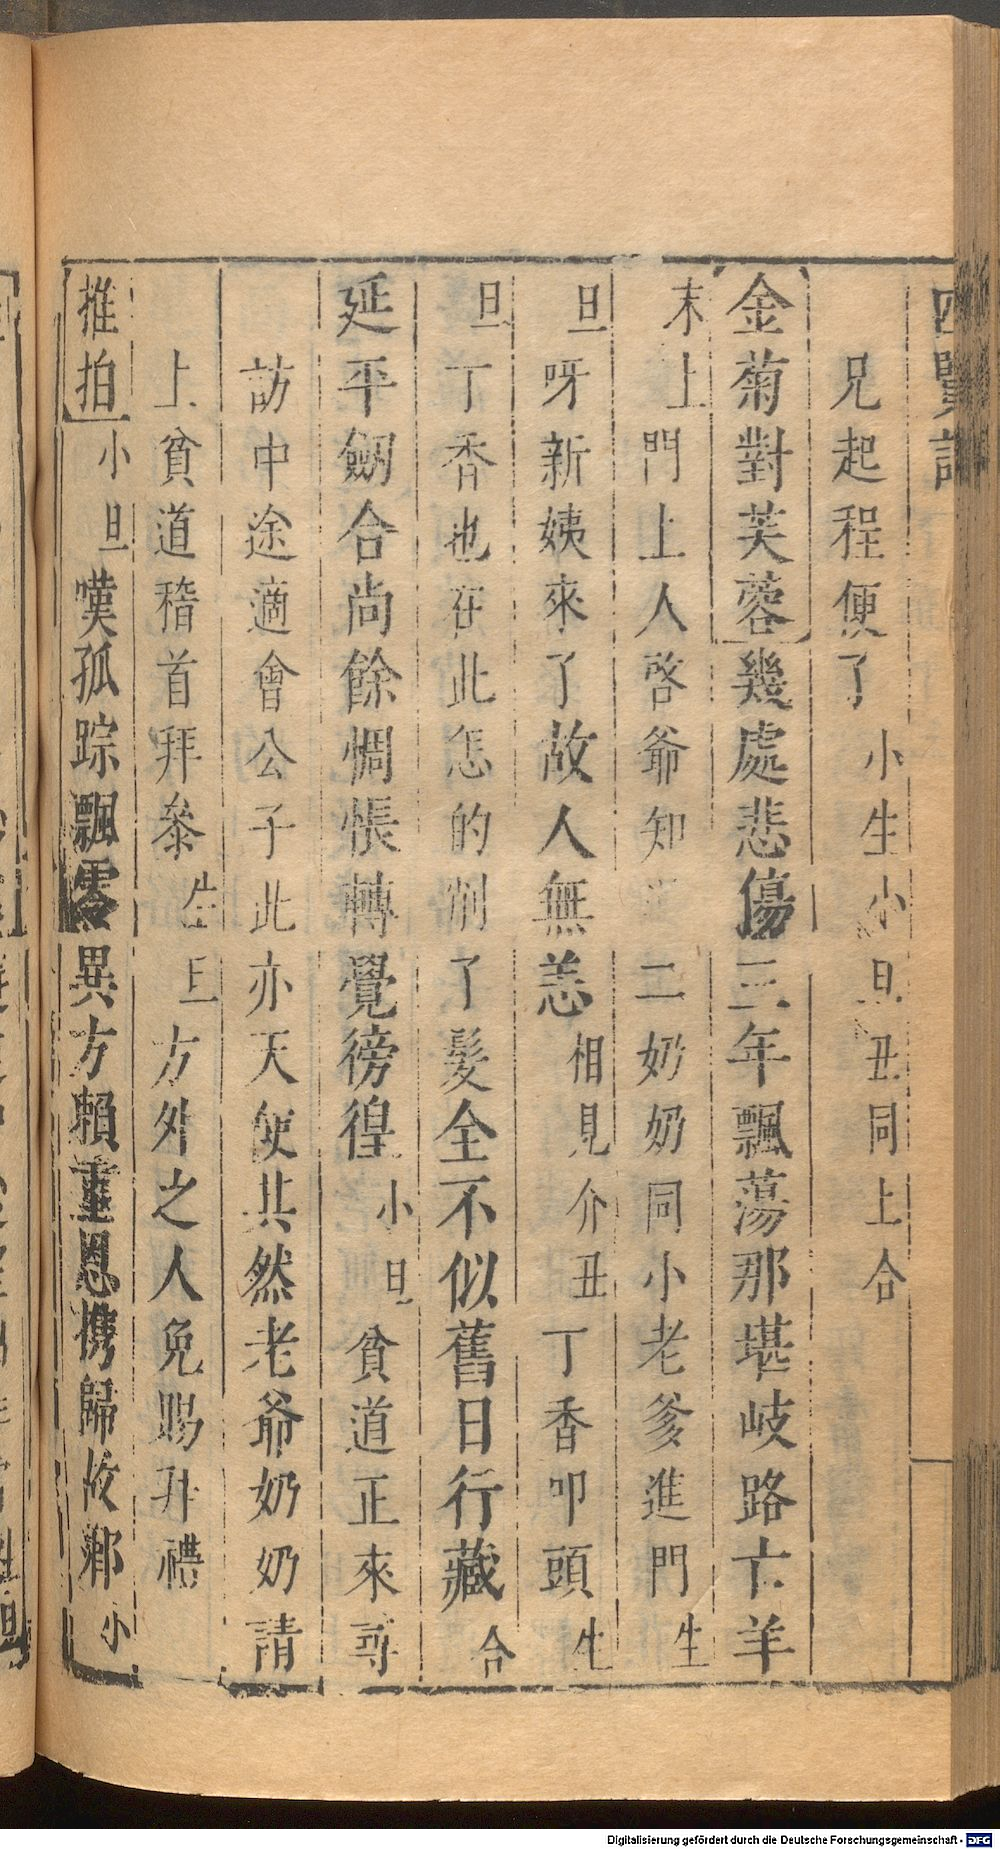 四賢記
兄起程便了 小生小旦丑同上合
金菊對芙蓉 幾處悲傷三年飄蕩那堪岐路亡羊
末上門上人啓爺知 二奶奶同小老爹進門生
旦呀新姨來了故人無恙相見介丑丁香叩頭生
旦丁香也在此怎的削了髮全不似舊日行藏合
延平劒合尚餘惆悵轉覺徬徨小旦貧道正來尋
訪中途適會公子此亦天使其然老爺奶奶請
上貧道稽首拜叅生旦方外之人免賜升禮
推拍 小旦嘆孤踪飄零異方賴重恩携歸故鄉小
Digitalisierung gefördert durch die Deutsche Forschungsgemeinschaft - DFG